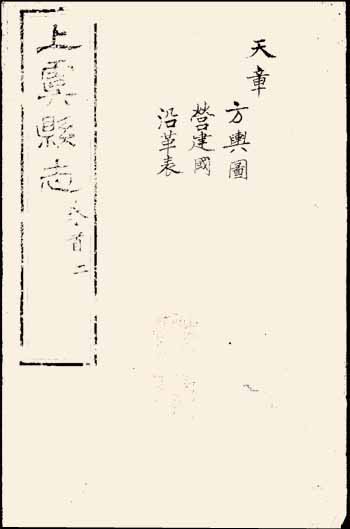 天章
方輿圖
營建國
沿革表
上虞縣志 卷首 二